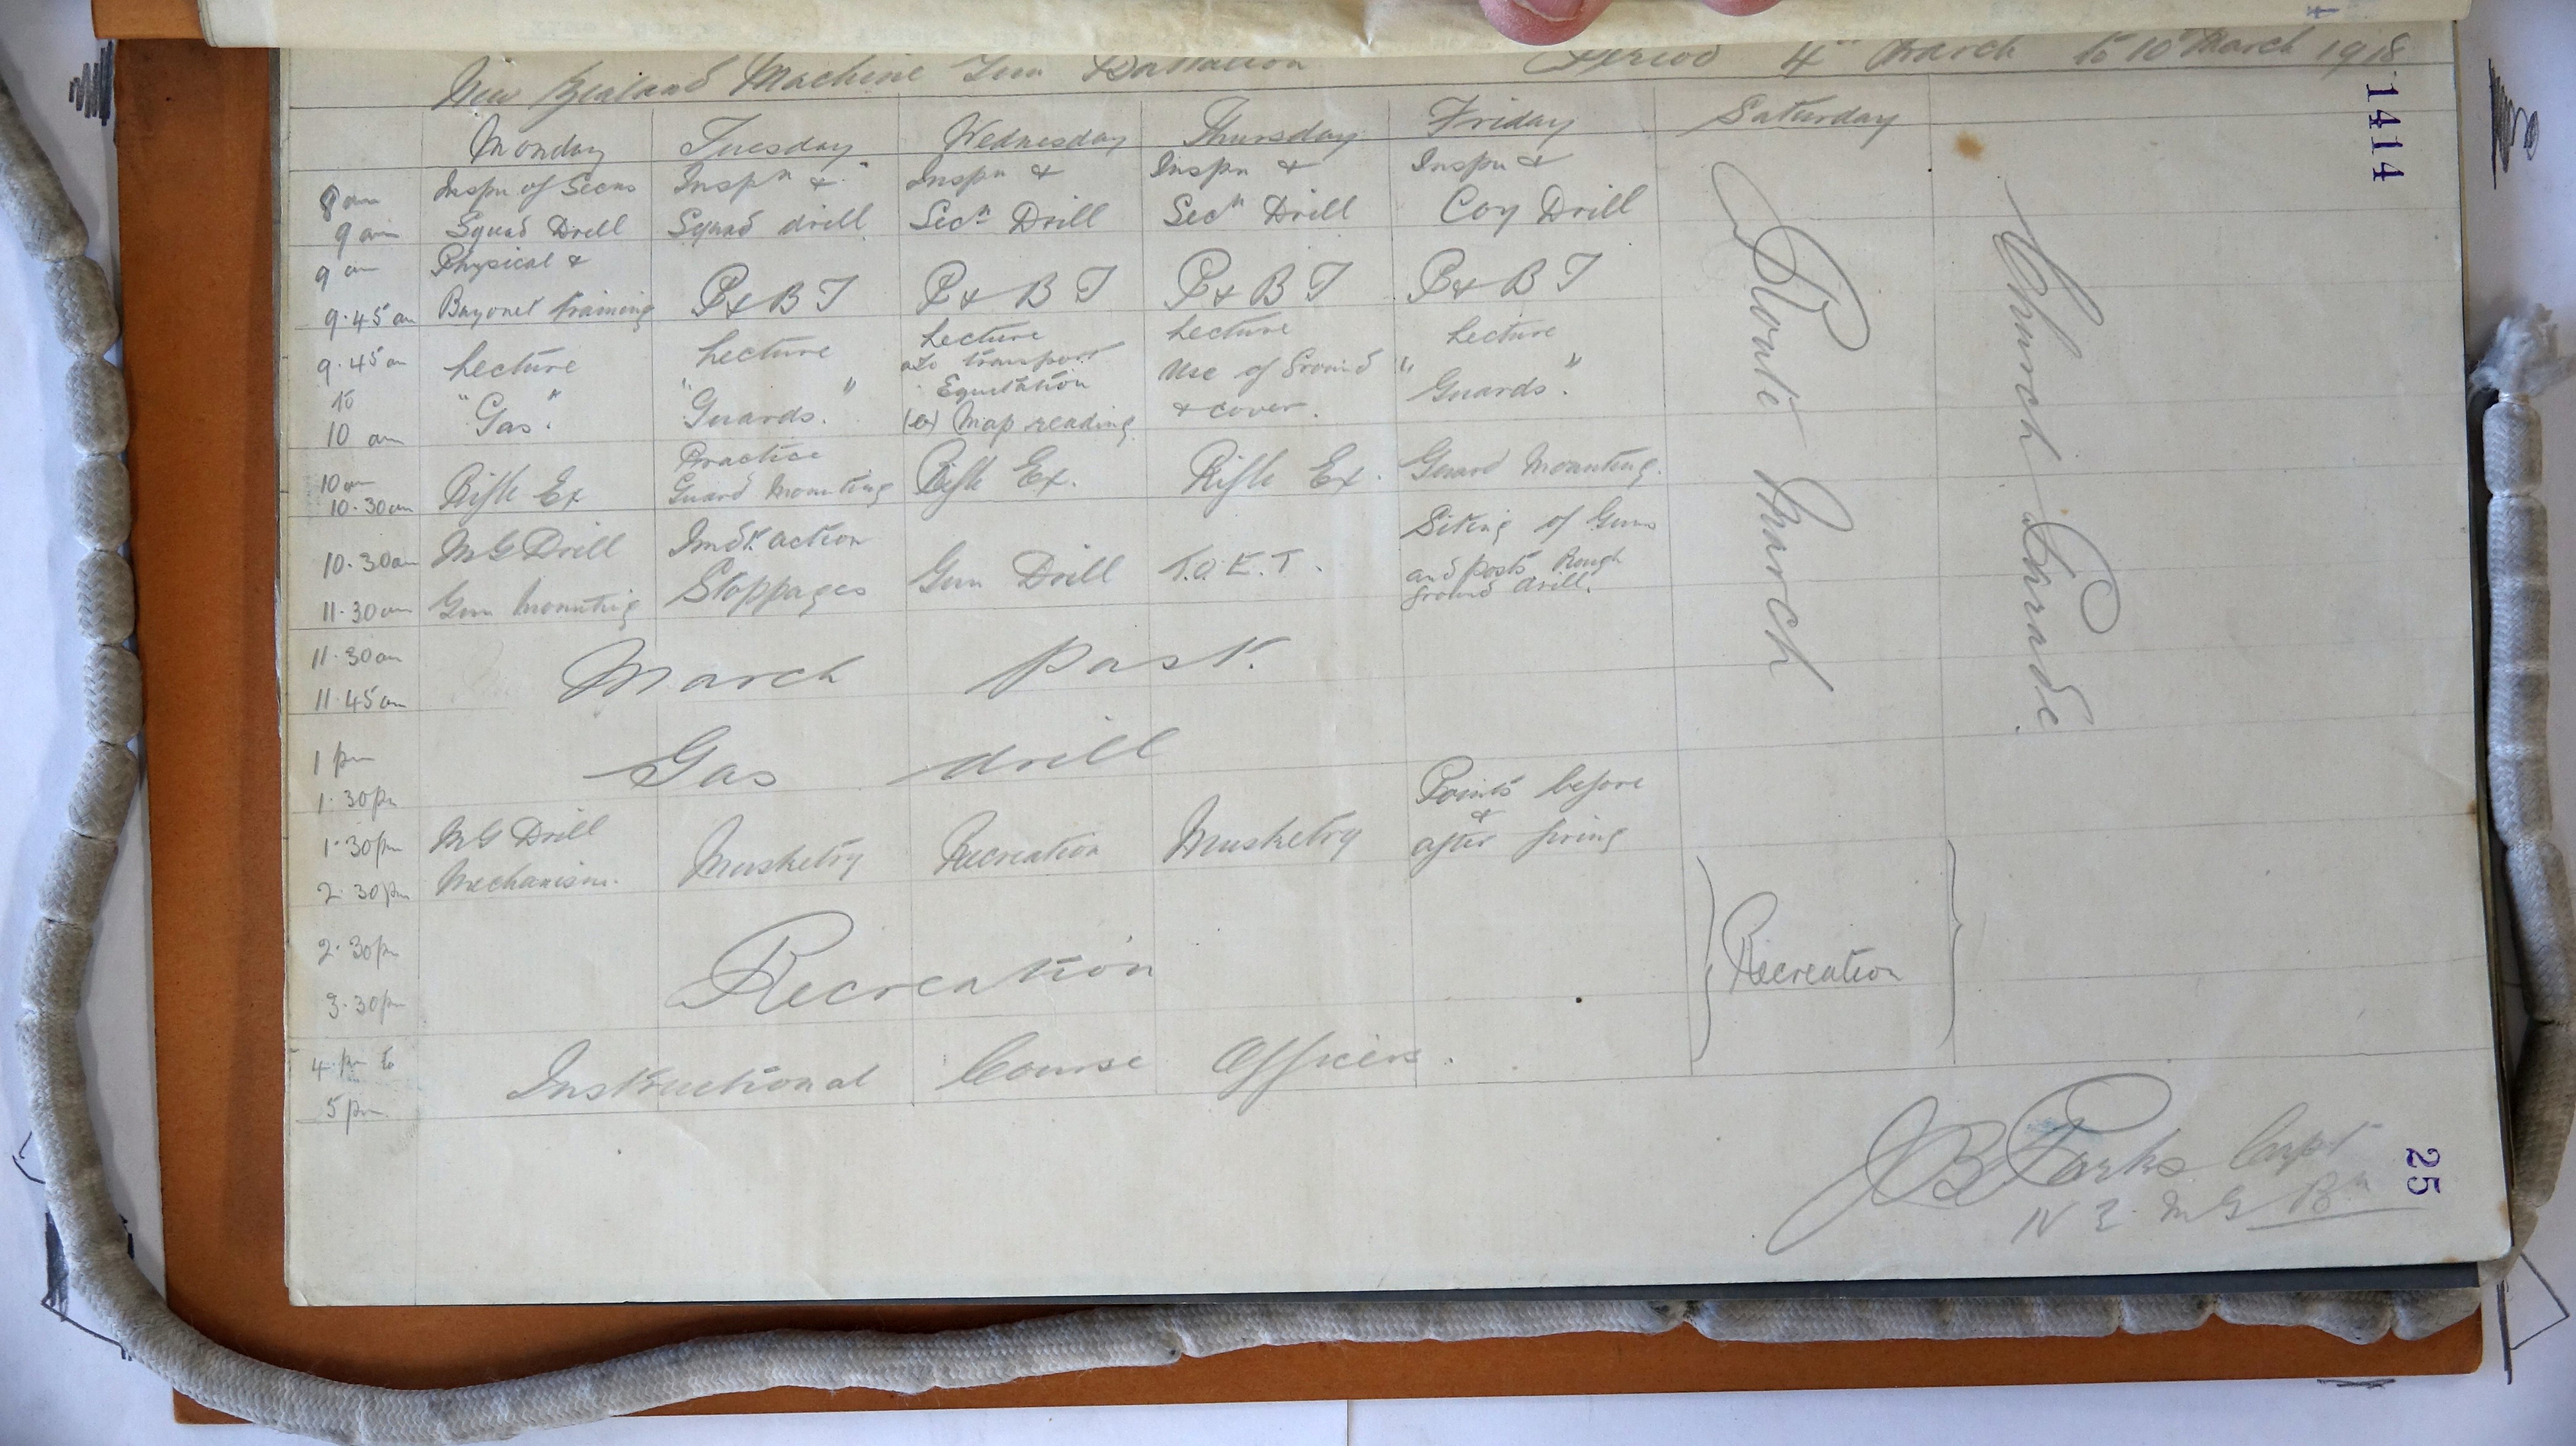 New Zealand Machine Gun Battalion Period 4th March to 10th March 1918
1414
Monday Tuesday Wednesday Thursday Friday Saturday
8 am Inspn of Secns Inspn & Inspn & Inspn & Inspn &
9 am Squad Drill Squad drill Secn Drill Secn Drill Coy Drill
9 am Physical &
9.45 am Bayonet training P & B T P & B T P & B T P & B T
9.45 am Lecture Lecture Lecture Lecture Lecture
to transport
Equitation
10 am "Gas" "Guards." (b) Map reading Use of Ground & cover. "Guards."
10 am Practice
10.30 am Rifle Ex Guard Mounting Rifle Ex. Rifle Ex. Guard Mounting.
10.30 am MG Drill Action Gun Drill T.O.E.T. Siting of Guns
and posts Rough
11.30 am Gun Mounting Stoppages ground drill.
11.30 am
11.45 am March past.
1 pm
1.30 pm Gas drill
1.30 pm MG Drill Musketry Recreation Musketry Points before
&
2.30 pm Mechanism. after firing
2.30 pm
3.30 pm Recreation
4 pm to
5 pm Instructional Course Officers.
Route March
Recreation
Church Parade.
JB Parks Capt
N Z MG Bn
25